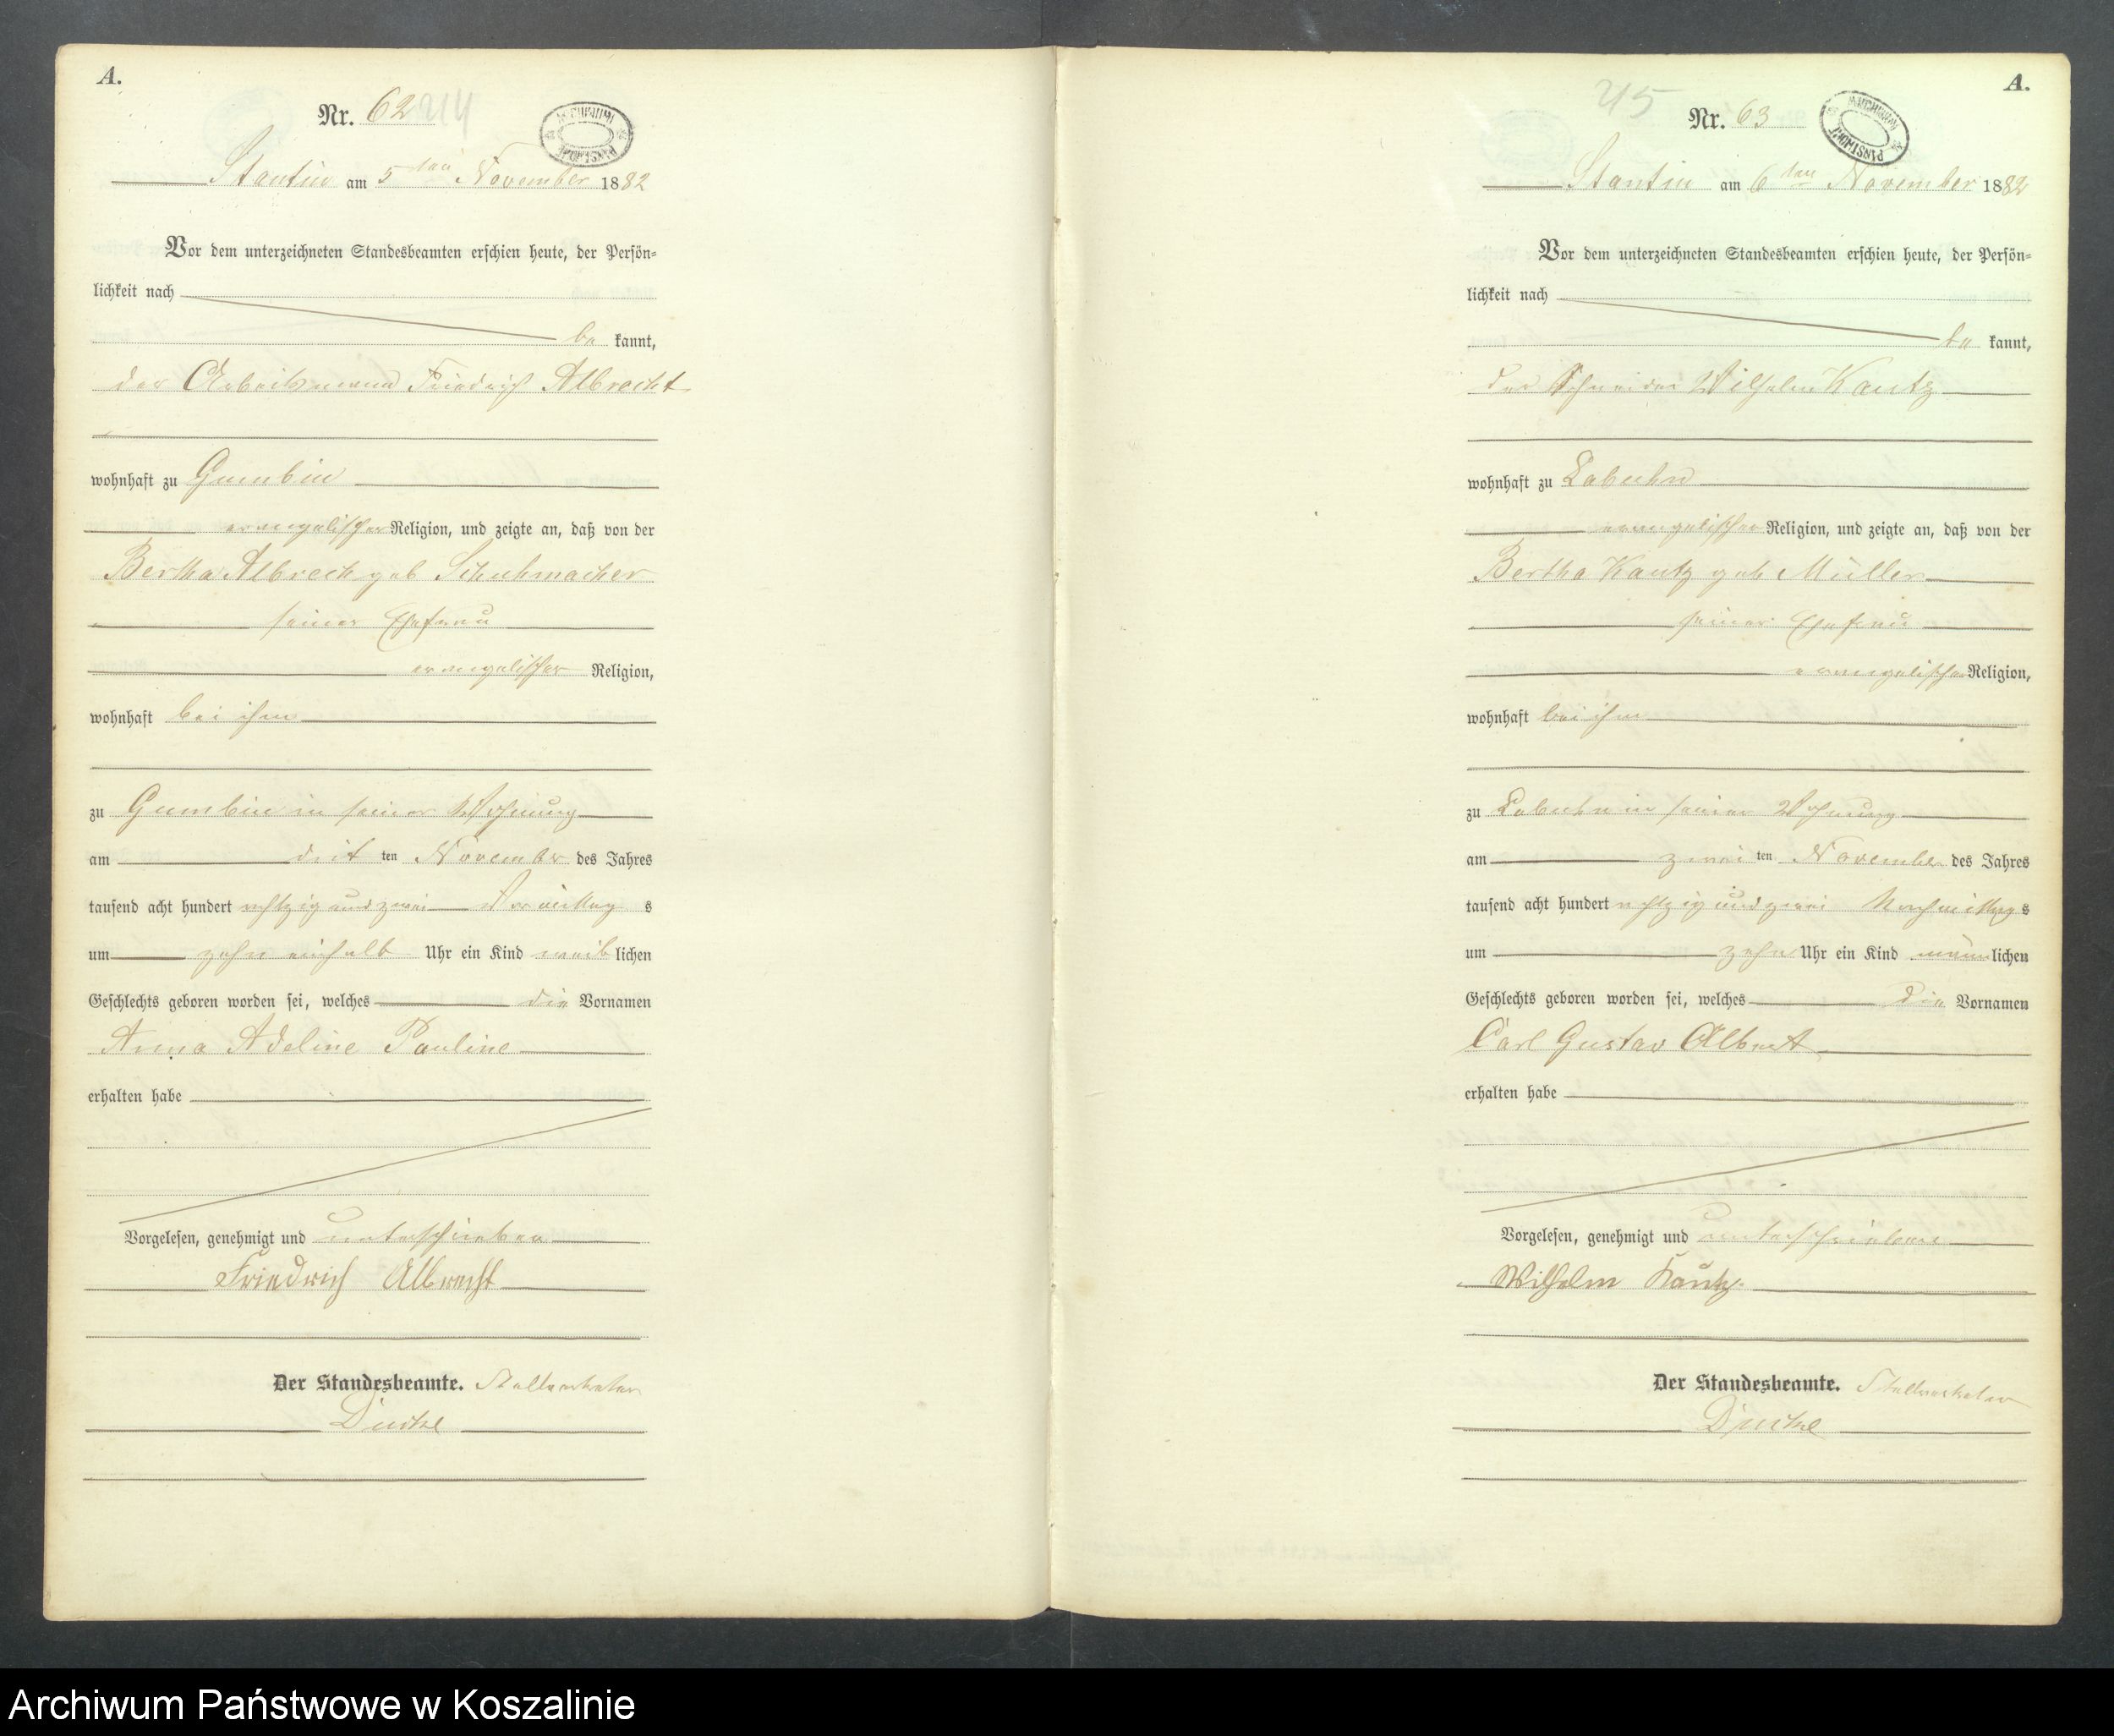 A.
Nr. 62 214
ARCHIWUM PAŃSTWOWE
Stantin am 5ten November 1882
Vor dem unterzeichneten Standesbeamten erschien heute, der Persön=
lichkeit nach
be kannt,
der Arbeitsmann Friedrich Albrecht
wohnhaft zu Gumbin
evangelischer Religion, und zeigte an, daß von der
Bertha Albrech geb Schuhmacher
seiner Ehefrau
evangelischer Religion,
wohnhaft bei ihm
zu Gumbin in seiner Wohnung
am ten November des Jahres
tausend acht hundert achtzig und zwei Vormittag s
um zehn einhalb Uhr ein Kind weib lichen
Geschlechts geboren worden sei, welches die Vornamen
Anna Adeline Pauline
erhalten habe
Vorgelesen, genehmigt und unterschrieben
Friedrich Albrecht
Der Standesbeamte. Stellvertreter
A.
215
Nr. 63
ARCHIWUM PAŃSTWOWE
Stantin am 6ten November 1882
Vor dem unterzeichneten Standesbeamten erschien heute, der Persön=
lichkeit nach
be kannt,
der Schneider Wilhelm Kautz
wohnhaft zu Labuhn
evangelischer Religion, und zeigte an, daß von der
Bertha Kautz geb Müller
seiner Ehefrau
evangelischer Religion,
wohnhaft bei ihm
zu Labuhn in seiner Wohnung
am zwei ten November des Jahres
tausend acht hundert achtzig und zwei Nachmittag s
um zehn Uhr ein Kind männ lichen
Geschlechts geboren worden sei, welches die Vornamen
Carl Gustav Albert
erhalten habe
Vorgelesen, genehmigt und unterschrieben
Wilhelm Kautz.
Der Standesbeamte. Stellvertreter
Archiwum Państwowe w Koszalinie